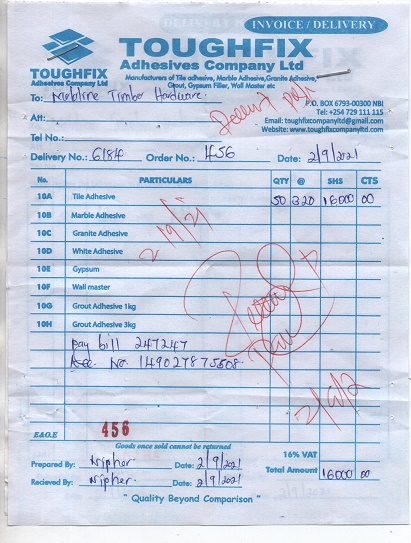 INVOICE / DELIVERY
TOUGHFIX
Adhesives Company Ltd
TOUGHFIX
Adhesives Company Ltd
Manufacturers of Tile adhesive, Marble Adhesive, Granite Adhesive,
Grout, Gypsum Filler, Wall Master etc
To: Timber Hardware
P.O. BOX 6793-00300 NBI
Tel: +254 729 111 115
Email: toughfixcompanyltd@gmail.com
Website: www.toughfixcompanyltd.com
Att:
Tel No:
Delivery No: 6184 Order No: 456 Date: 2/9/2021
No. PARTICULARS QTY @ SHS CTS
10A Tile Adhesive 50 320 16000 00
10B Marble Adhesive
10C Granite Adhesive
2/9/21
10D White Adhesive
10E Gypsum
10F Wall master
10G Grout Adhesive 1kg
10H Grout Adhesive 3kg
pay bill 247247
Acc. No. 
E&O.E 456
Goods once sold cannot be returned
16% VAT
Prepared By: Date: 2/9/2021
Total Amount 16000 00
Recieved By: Date: 2/9/2021
" Quality Beyond Comparison "